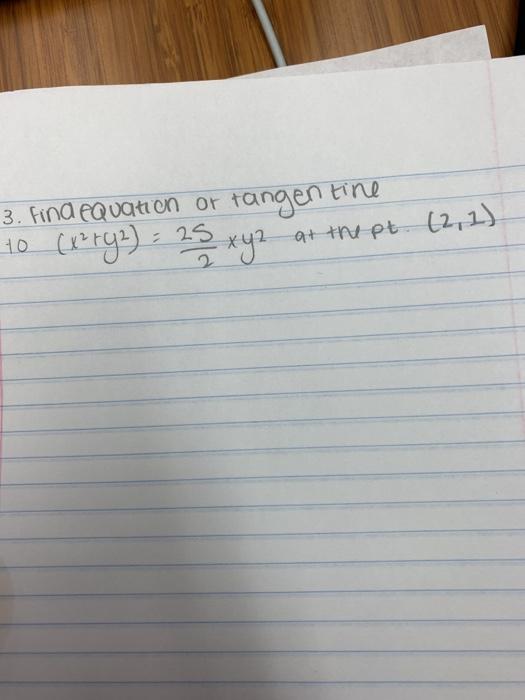 3. Find equation or tangen tine
to (x²+y²) = 25/2 xy² at the pt. (2,1)